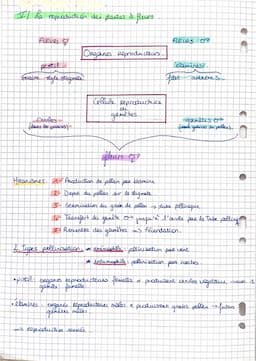 II/ La reproduction des plantes à fleurs
Fleurs ♀ Fleurs ♂
Organes reproducteurs
pistil étamines
Ovaire style stigmate filet anthères
Cellule reproductrice
gamètes
Ovules gamètes ♂
fleurs
1 Production de pollen par étamine
2 Dépot du pollen sur le stigmate
3 Germination du grain de pollen → tube pollinique
4 Transfert du gamète ♂ jusqu'à l'ovule par le tube pollinique
5 Rencontre des gamètes => fécondation.
2 Types pollinisation : • anémophile : pollinisation par vent
• entomophile : pollinisation par insectes
• pistil : organes reproducteurs femelles
gamète femelle.
• étamines : organes reproducteurs mâles produisent grains pollen →
gamètes mâles
=> reproduction sexuée